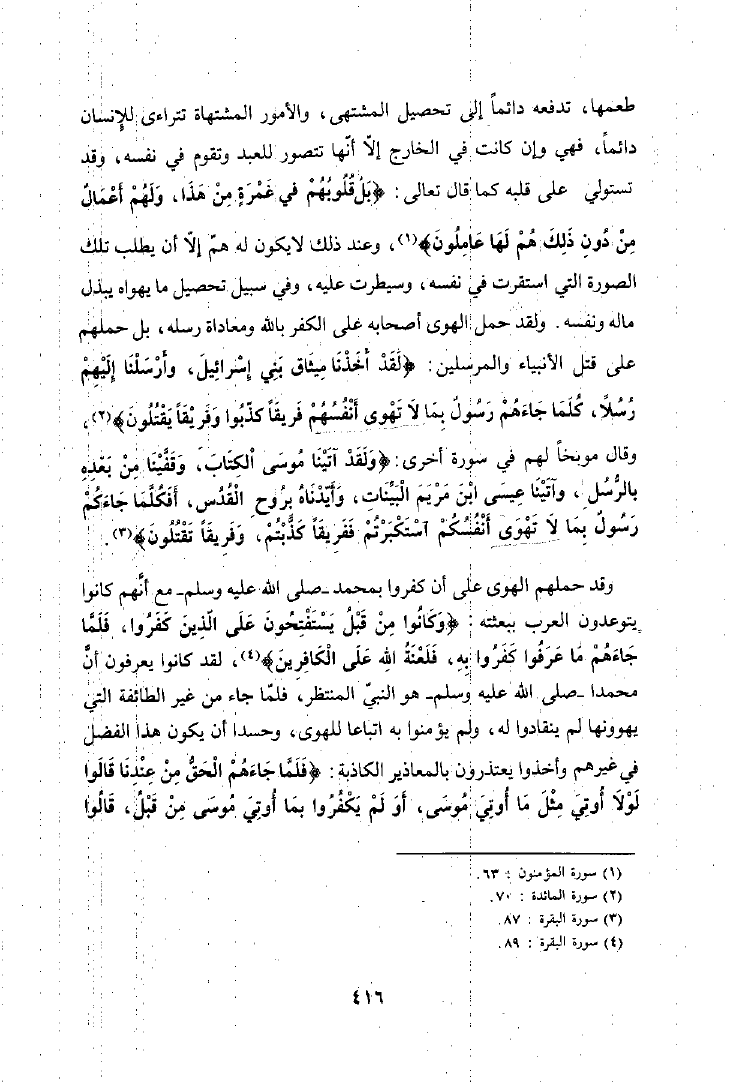 طعمها، تدفعه دائماً إلى تحصيل المشتهى، والأمور المشتهاة تتراءى للإنسان
دائماً، فهي وإن كانت في الخارج إلّا أنّها تتصور للعبد وتقوم في نفسه، وقد
تستولي على قلبه كما قال تعالى: ﴿بَلْ قُلُوبُهُمْ في غَمْرَةٍ مِنْ هَذَا، وَلَهُمْ أَعْمَالٌ
مِنْ دُونِ ذَلِكَ هُمْ لَهَا عَامِلُونَ﴾(١)، وعند ذلك لايكون له همّ إلّا أن يطلب تلك
الصورة التي استقرت في نفسه، وسيطرت عليه، وفي سبيل تحصيل ما يهواه يبذل
ماله ونفسه. ولقد حمل الهوى أصحابه على الكفر بالله ومعاداة رسله، بل حملهم
على قتل الأنبياء والمرسلين: ﴿لَقَدْ أَخَذْنَا مِيثَاق بَنِي إسْرائِيلَ، وأَرْسَلْنَا إلَيْهِمْ
رُسُلًا، كُلَمَا جَاءَهُمْ رَسُولٌ بِمَا لاَ تَهْوى أَنْفُسُهُمْ فَرِيقاً كذّبُوا وَفَرِيقاً يَقْتُلُونَ﴾(٢)،
وقال موبخاً لهم في سورة أخرى: ﴿وَلَقَدْ آتَيْنا مُوسَى الْكِتَابَ، وَقَفَّيْنا مِنْ بَعْدِهِ
بالرُّسُلِ، وآتَيْنْا عِيسَى ابْنَ مَرْيَمَ الْبَيِّنَاتِ، وَأَيَّدْنَاهُ بِرُوحِ الْقُدُسِ، أَفَكُلَّمَا جَاءَكُمْ
رَسُولٌ بِمَا لاَ تَهْوَى أَنْفُسُكُمْ آسْتَكْبَرْتُمْ فَفَرِيقاً كَذَّبْتُمْ، وَفَرِيقَاً تَقْتُلُونَ﴾(٣).
وقد حملهم الهوى على أن كفروا بمحمد ـصلى الله عليه وسلمـ مع أنَّهم كانوا
يتوعدون العرب ببعثته: ﴿وَكَانُوا مِنْ قَبْلُ يَسْتَفْتِحُونَ عَلَى الّذِينَ كَفَرُوا، فَلَمَّا
جَاءَهُمْ مَا عَرَفُوا كَفَرُوا بِهِ، فَلَعْنَةُ اللهِ عَلَى الْكَافِرِينَ﴾(٤)، لقد كانوا يعرفون أنَّ
محمدا ـصلى الله عليه وسلمـ هو النبيّ المنتظر، فلمّا جاء من غير الطائفة التي
يهوونها لم ينقادوا له، ولم يؤمنوا به اتباعا للهوى، وحسدا أن يكون هذا الفضل
في غيرهم وأخذوا يعتذرون بالمعاذير الكاذبة: ﴿فَلَمَّا جَاءَهُمْ الْحَقُّ مِنْ عِنْدِنَا قَالُوا
لَوْلَا أُوتِيَ مِثْلَ مَا أُوتِيَ مُوسَى، أَوَ لَمْ يَكْفُرُوا بِمَا أُوتِيَ مُوسَى مِنْ قَبْلُ، قَالُوا
(١) سورة المؤمنون: ٦٣.
(٢) سورة المائدة: ٧٠.
(٣) سورة البقرة: ٨٧.
(٤) سورة البقرة: ٨٩.
٤١٦